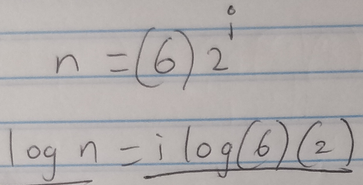 n = (6) 2^i
log n = i log(6)(2)